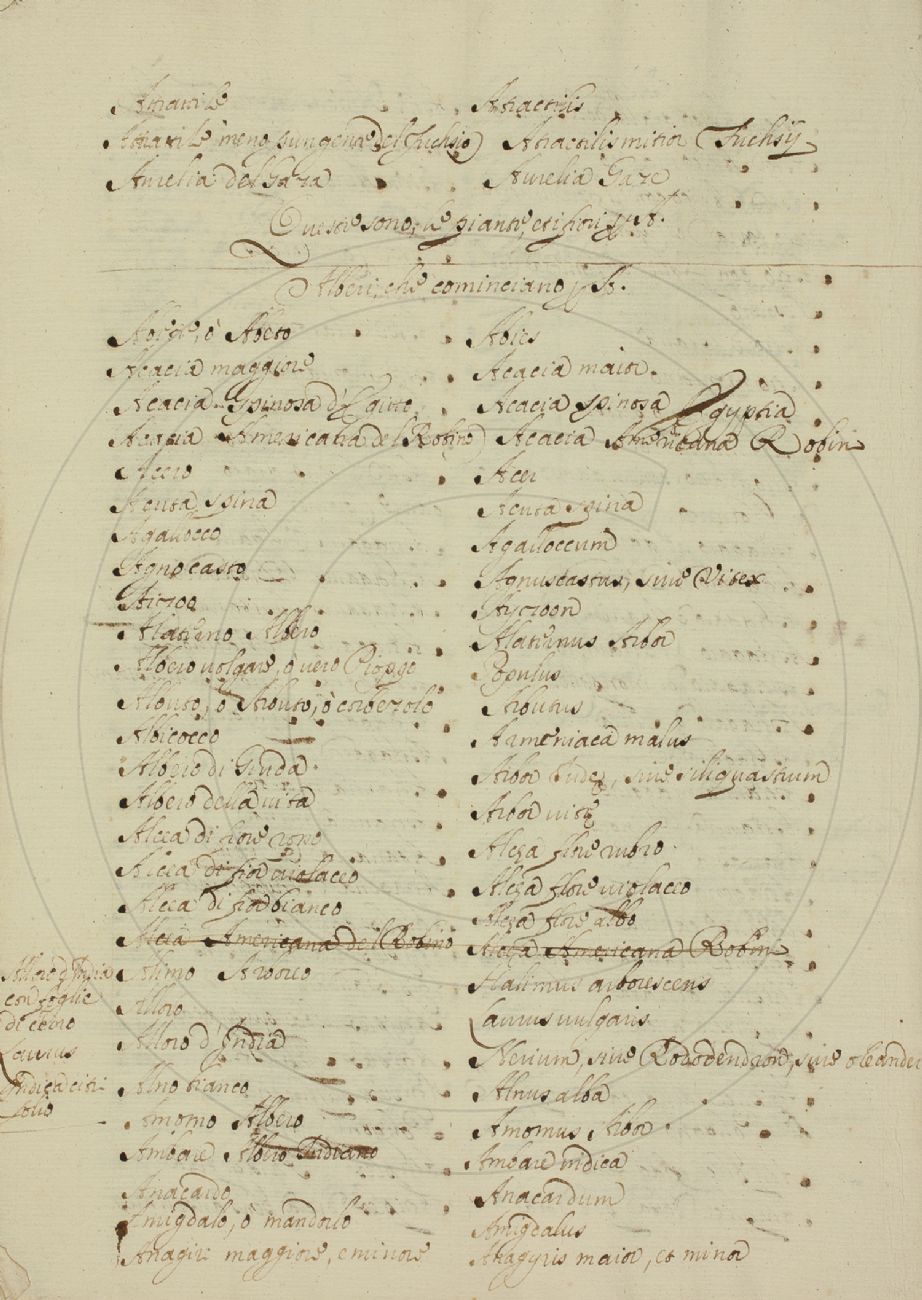 Attratile Atractilis
Attratile meno pungente del Fuchsio Atractilis mitior Fuchsij
Aurelia del Gaza Aurelia Gaze
Queste sono, le piante, et i fiori p A.
Alberi, che cominciano p A.
Abete, ò Abeto Abies
Acacia maggiore Acacia maior
Acacia Spinosa d'Egitto Acacia spinosa Egyptia
Acacia Americana del Robino Acacia Americana Robin
Acero Acer
Acuta spina Acuta spina
Agallocco Agalloccum
Agnocasto Agnuscastus, sive Vitex
Aizoo Ayzoon
Alaterno Albero Alaternus Arbor
Albero volgare, o vero Pioppo Populus
Albuto, ò Arbuto, ò corbezolo Arbutus
Albicocco Armeniaca malus
Albero di Giuda Arbor Iude, sive siliquastrum
Albero della vita Arbor vite
Alcea di fiore roso Alcea flore rubro
Alcea di fior violaceo Alcea flore violaceo
Alcea di fior bianco Alcea flore albo
Alcea Americana del Robino Alcea Americana Robin
Alimo Arboreo Halimus arborescens
Alloro Laurus vulgaris
Alloro d'India Nerium, sive Rododendron, sive oleander
Alloro d'India
con foglie
di cedro
Laurus
Indica citri
folio
Alno bianco Alnus alba
Amomo Albero Amomus Arbor
Ambare Albero Indiano Ambare indica
Anacardo Anacardum
Amigdalo, ò mandorlo Amigdalus
Anagiri maggiore, e minore Anagyris maior, et minor